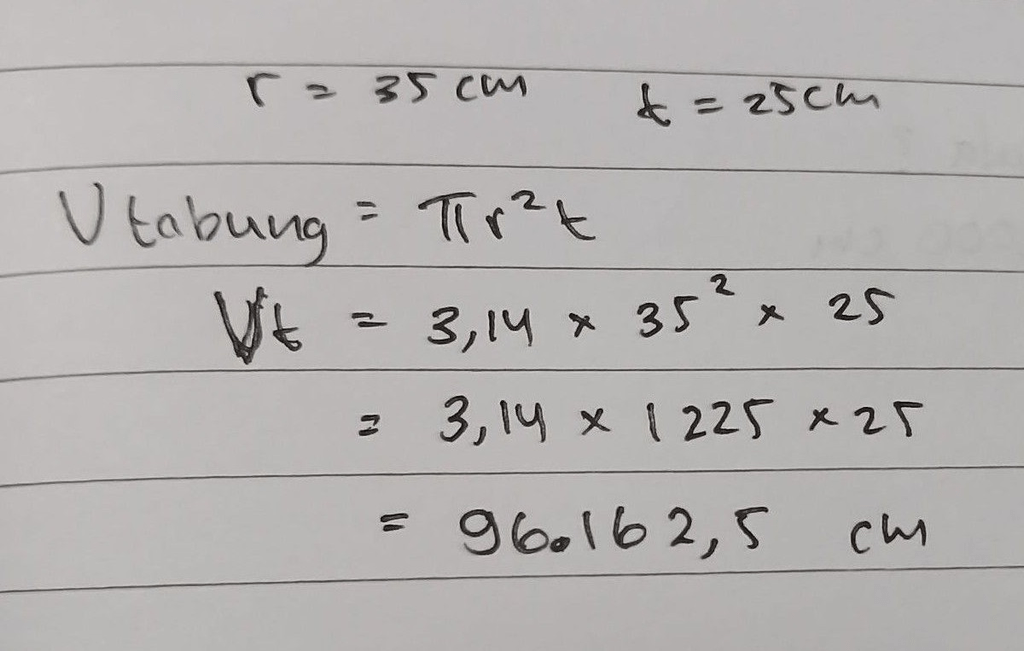 r = 35 cm t = 25 cm
V tabung = πr²t
Vt = 3,14 × 35² × 25
= 3,14 × 1225 × 25
= 96.162,5 cm